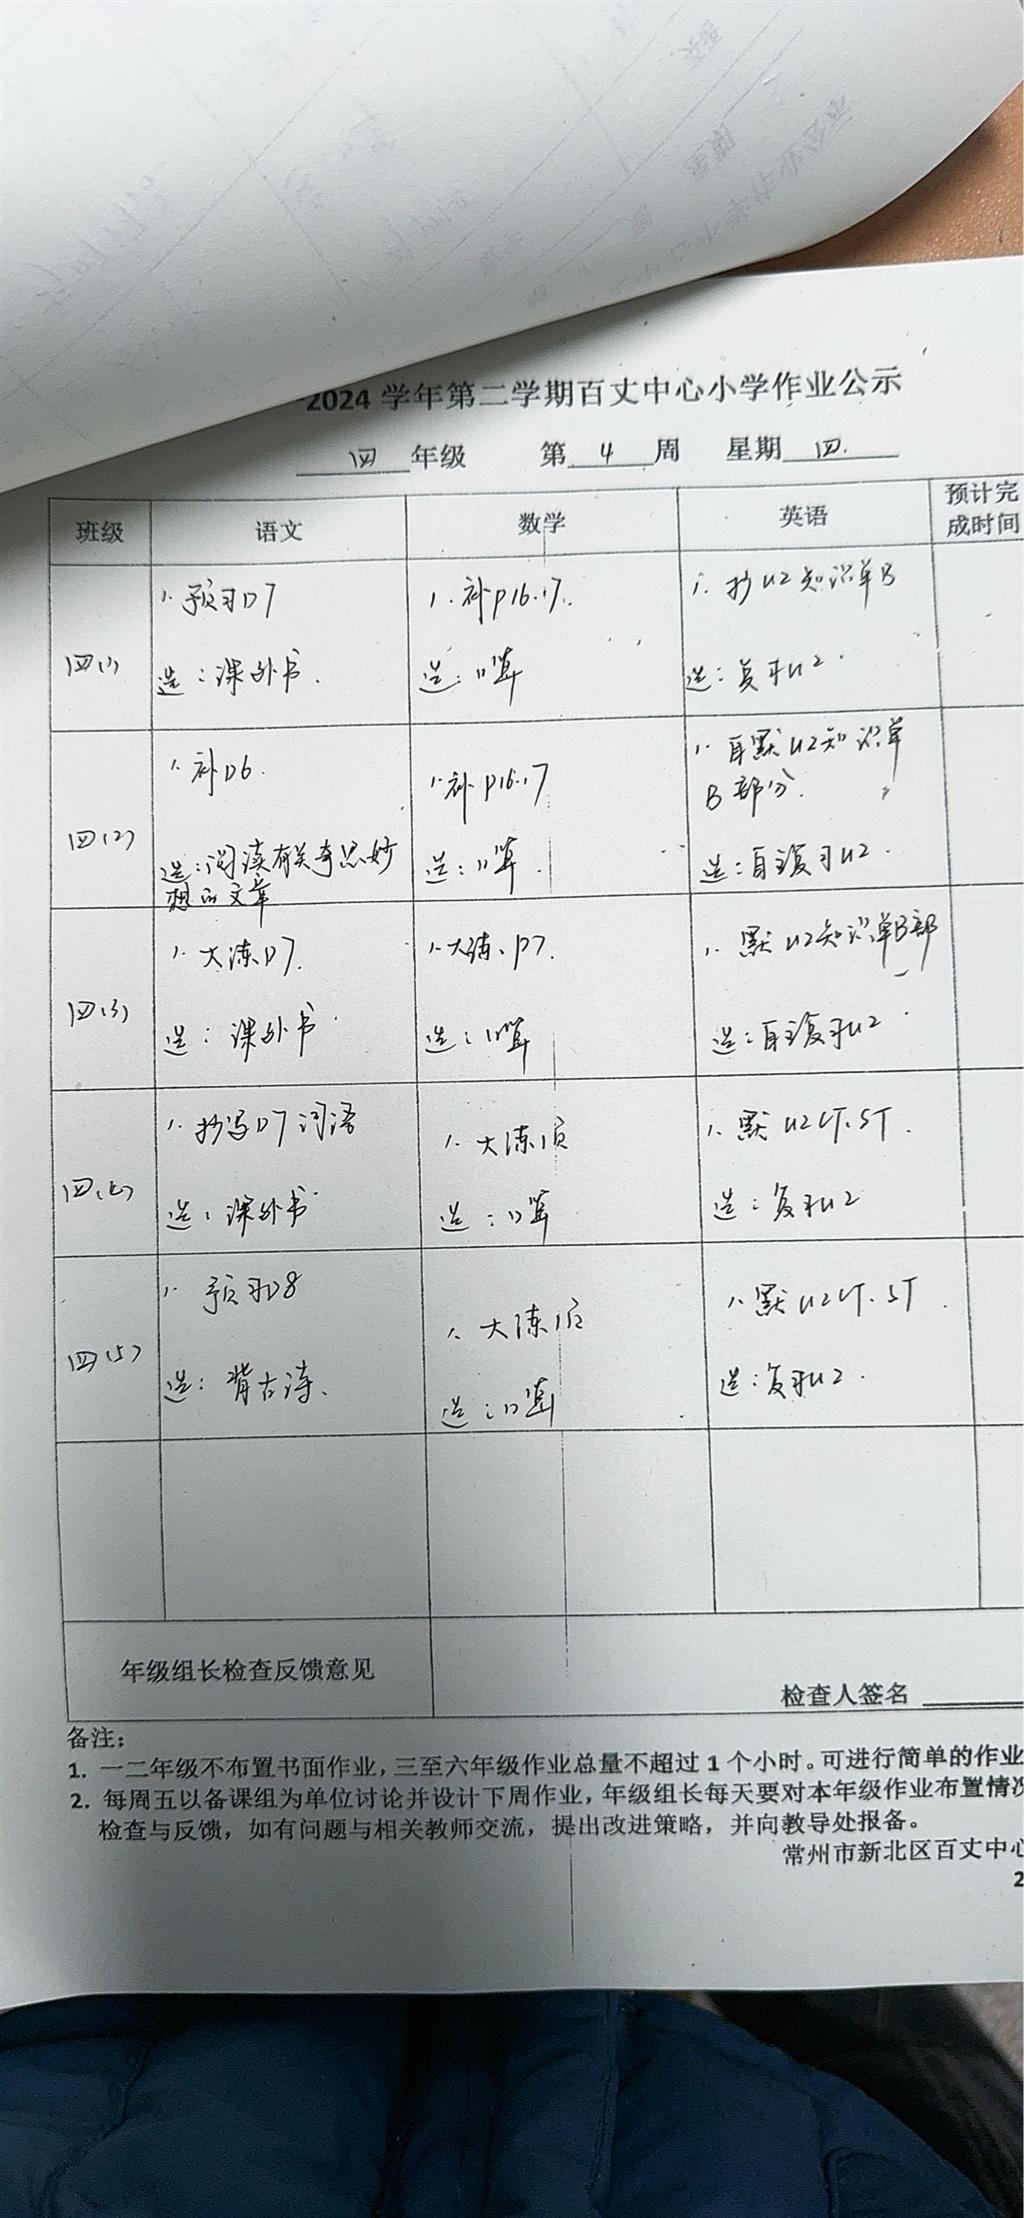 2024 学年第二学期百丈中心小学作业公示
四 年级 第 4 周 星期 四.
班级 语文 数学 英语 预计完
成时间
四(1)
1. 预习D7
选：课外书.
1. 补P16.17.
选：口算
1. 抄U2知识单B
选：复习U2
四(2)
1. 补D6.
选：阅读有关奇思妙
想的文章
1. 补P16.17
选：口算.
1. 自默U2知识单
B部分.
选：自主复习U2.
四(3)
1. 大练D7.
选：课外书.
1. 大练、P7.
选：口算
1. 默U2知识单B部
选：自主复习U2
四(4)
1. 抄写D7词语
选：课外书
1. 大练1页
选：口算
1. 默U2CT.ST.
选：复习U2
四(5)
1. 预习D8
选：背古诗、
1. 大练1页
选：口算
1. 默U2CT.ST.
选：复习U2.
年级组长检查反馈意见
检查人签名
备注：
1. 一二年级不布置书面作业，三至六年级作业总量不超过 1 个小时。可进行简单的作业
2. 每周五以备课组为单位讨论并设计下周作业，年级组长每天要对本年级作业布置情况
检查与反馈，如有问题与相关教师交流，提出改进策略，并向教导处报备。
常州市新北区百丈中心
2